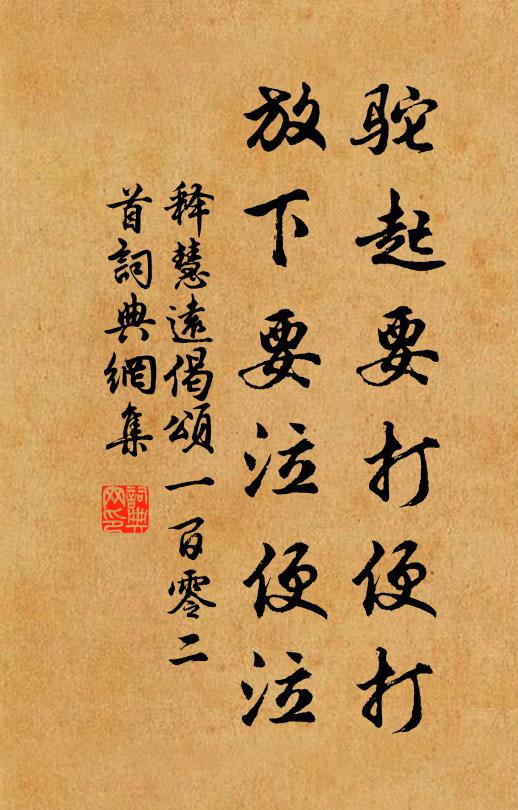 驼起要打便打
放下要泣便泣
释慧遠偈頌一百零二
首詞典網集
詞典网印